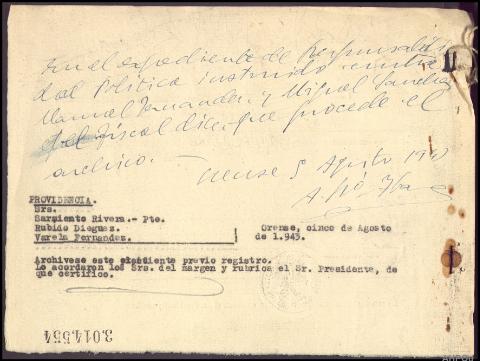 En el expediente de Responsabili
dad Política instruido contra
Manuel Fernandez y Miguel Sanchez
el Fiscal dice que procede el
archivo.
Orense 5 Agosto 1943
PROVIDENCIA.
Srs.
Sarmiento Rivera.- Pte.
Rubido Dieguez.
Varela Fernandez.
Orense, cinco de Agosto
de 1.943.
Archivese este expediente previo registro.
Lo acordaron los Srs. del margen y rubrica el Sr. Presidente, de
que certifico.
3.014.554